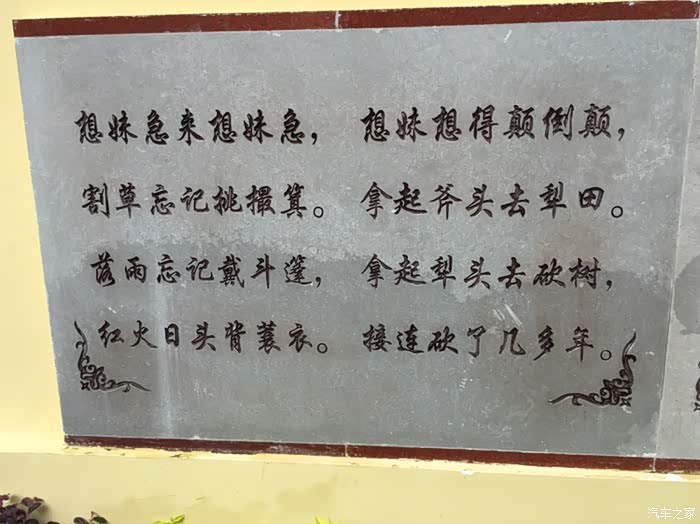 想妹急来想妹急， 想妹想得颠倒颠，
割草忘记挑撮箕。 拿起斧头去犁田。
落雨忘记戴斗篷， 拿起犁头去砍树，
红火日头背蓑衣。 接连砍了几多年。
汽车之家